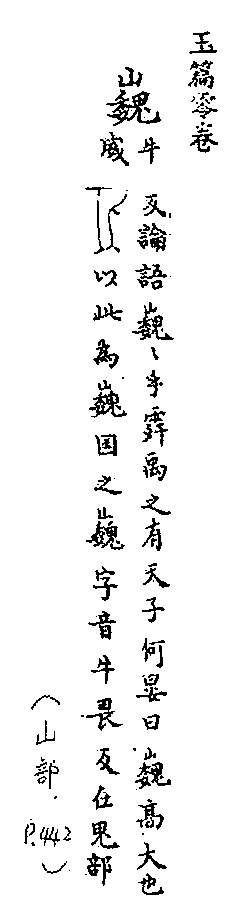 玉篇零卷
巍
牛威
反論語巍〻乎舜禹之有天子何晏曰巍高大也
以此為巍国之巍字音牛畏反在鬼部
(山部.
P.442)